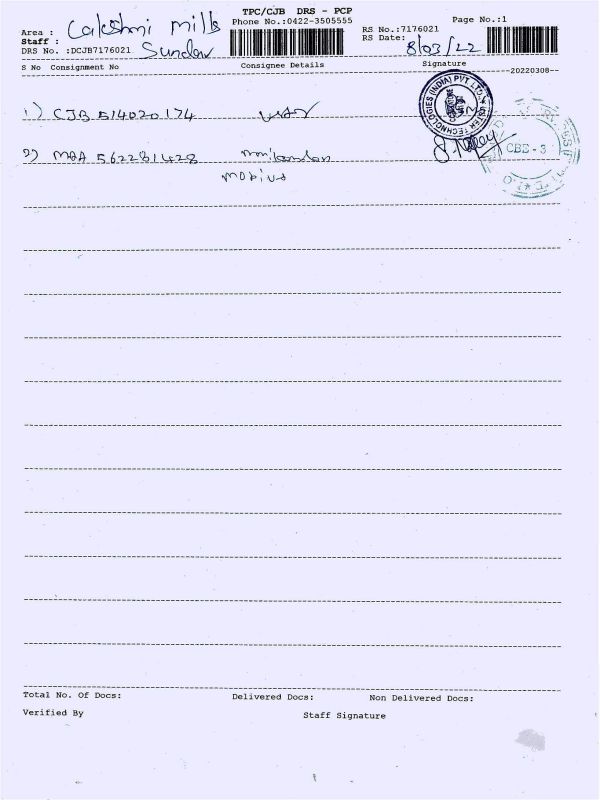 TPC/CJB DRS - PCP
Phone No.:0422-3505555
Page No.:1
Area : Lakshmi Mills
Staff : Sundar
DRS No. :DCJB7176021
RS No.:7176021
RS Date: 8/03/22
S No Consignment No Consignee Details Signature
20220308
1) CJB 514020174
2) MAA 562281428 manikandan
mobius
TECHNOLOGIES (INDIA) PVT LTD
CBE - 3
Total No. Of Docs: Delivered Docs: Non Delivered Docs:
Verified By Staff Signature